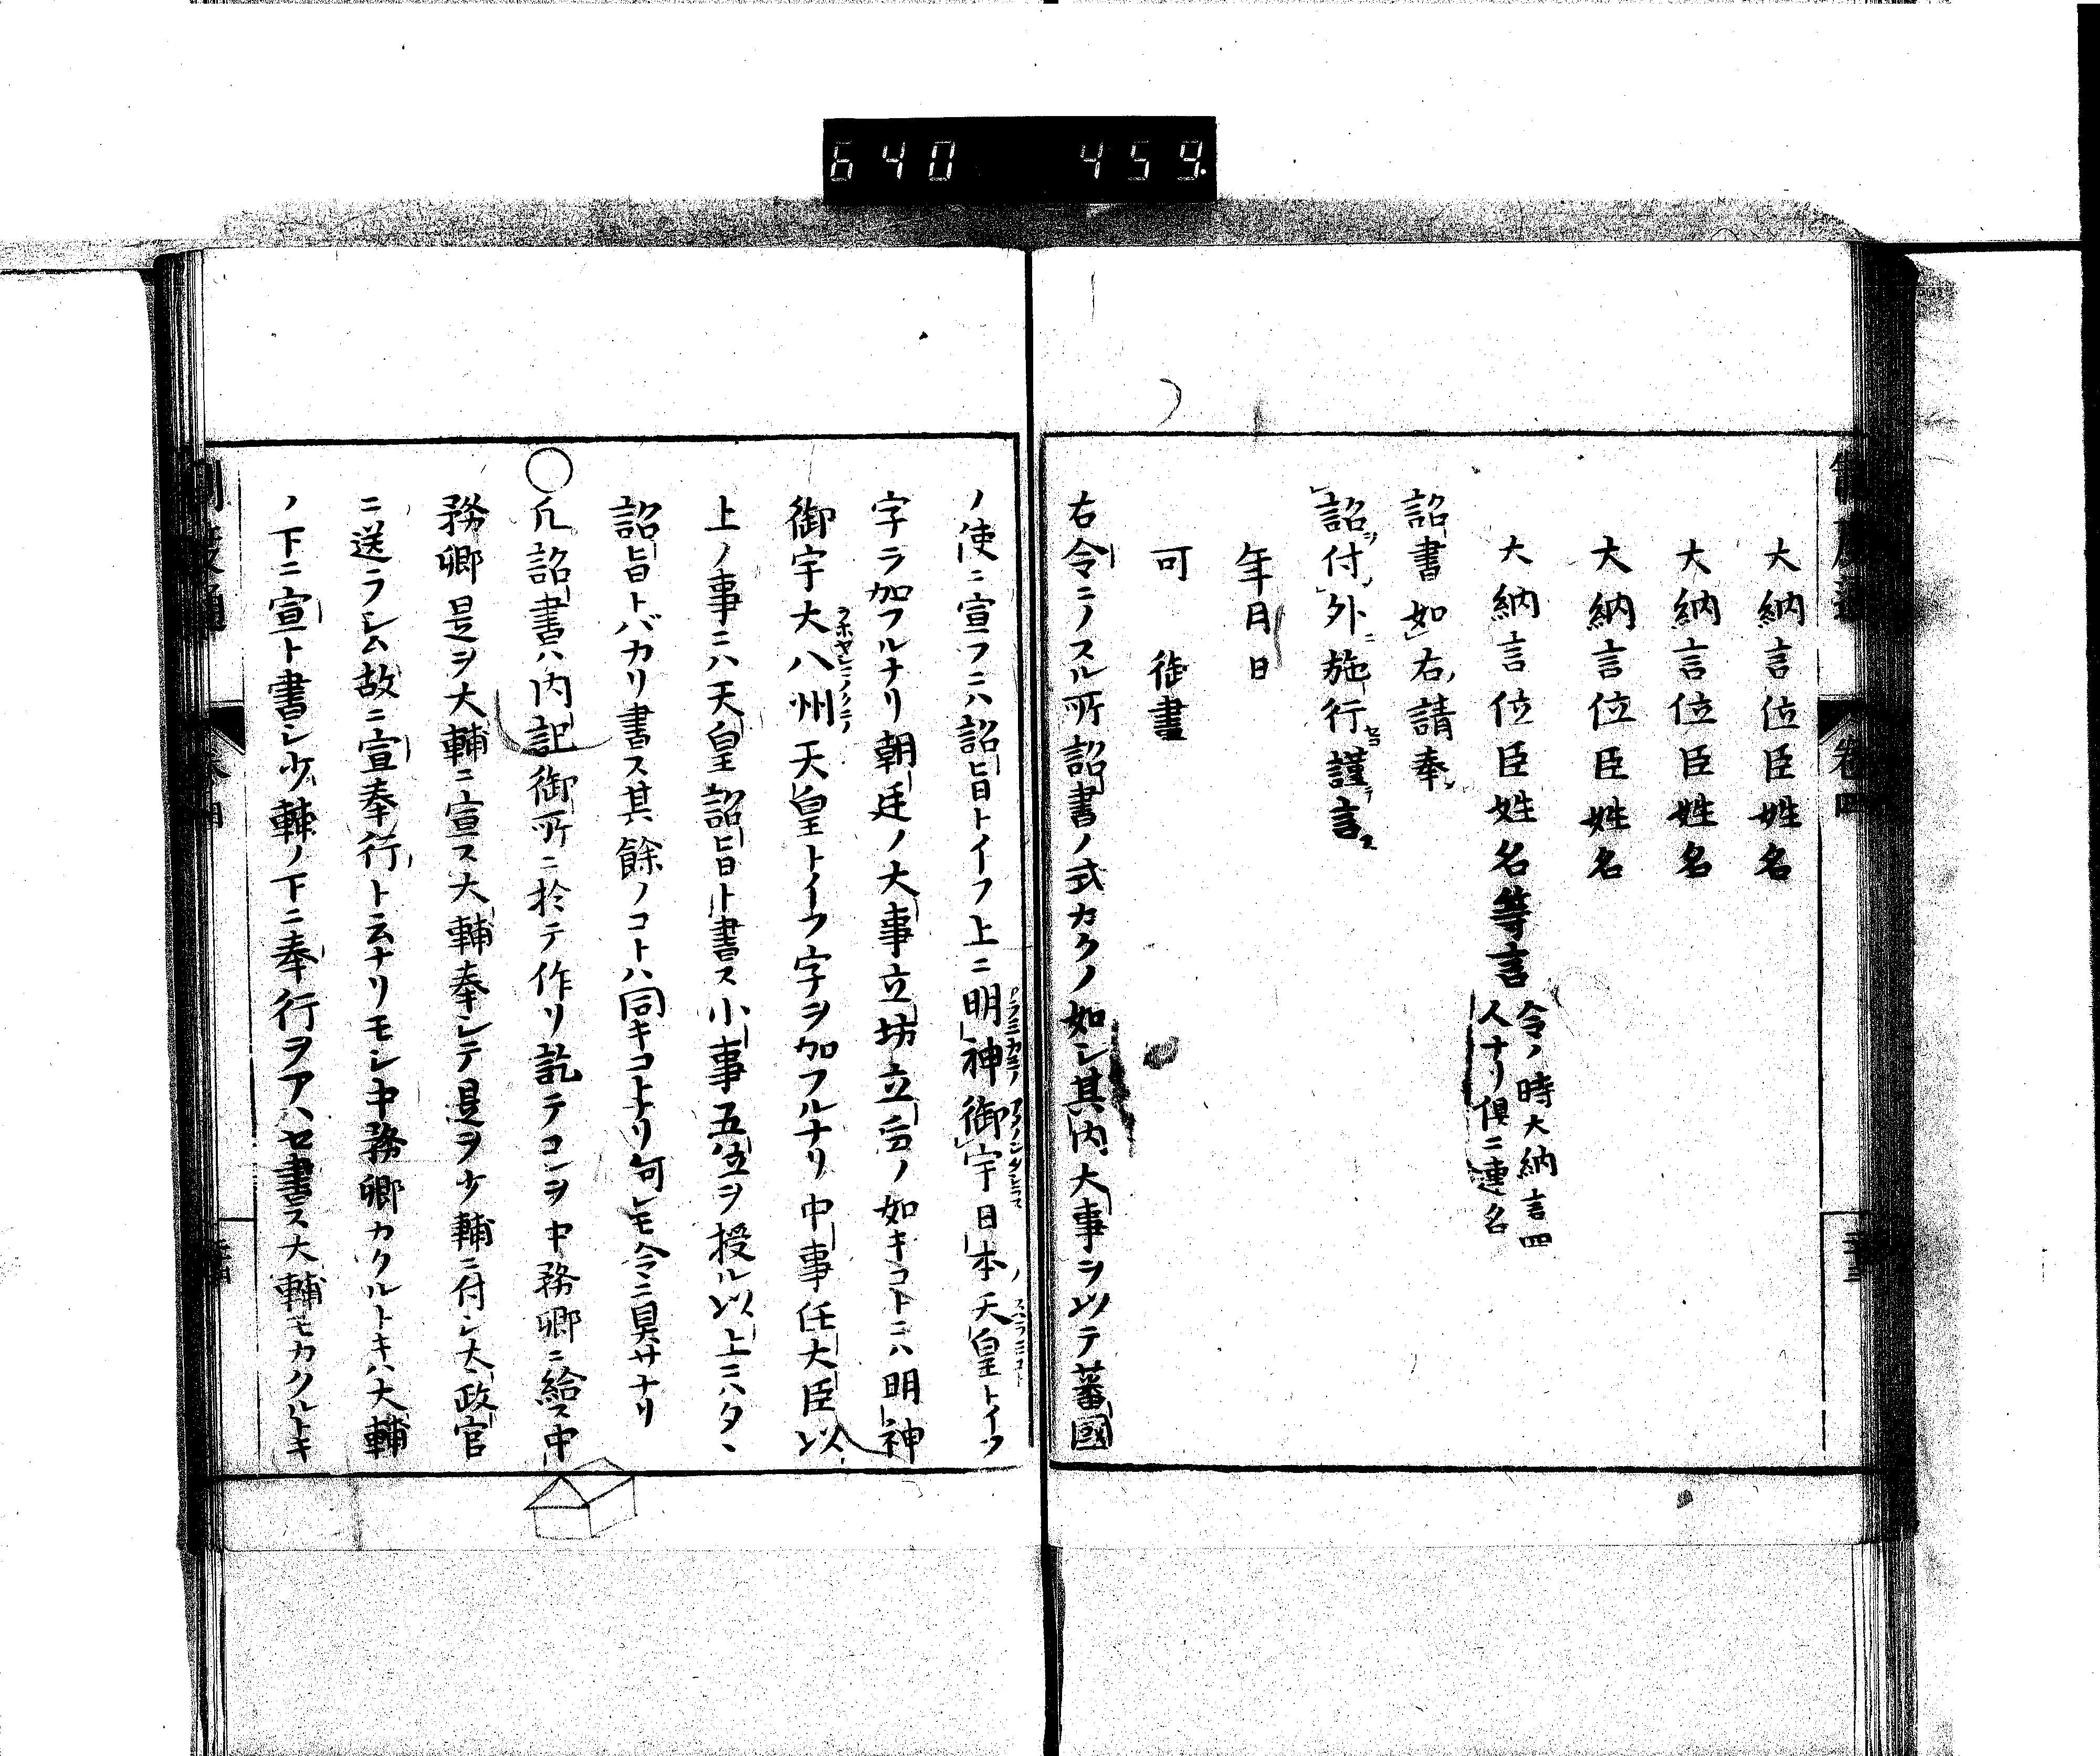 640 459.
卷四
大納言位臣姓名
大納言位臣姓名
大納言位臣姓名
大納言位臣姓名等言 令ノ時大納言四
人ナリ倶ニ連名
詔書如右請奉
詔付外施行謹言
年月日
可 御畫
右令ニノスル所詔書ノ式カクノ如シ其内大事ヲ以テ蕃國
ノ使ニ宣フニハ詔旨トイフ上ニ明神御宇日本天皇トイフ
字ヲ加フルナリ朝廷ノ大事立坊立后ノ如キコトニハ明神
御宇大八州天皇トイフ字ヲ加フルナリ中事任大臣以
上ノ事ニハ天皇詔旨ト書ス小事五位ヲ授ル以上ニハタヽ
詔旨トバカリ書ス其餘ノコトハ同キコトナリ何レモ令ニ具サナリ
〇凡詔書ハ内記御所ニ於テ作リ訖テコレヲ中務卿ニ給ス中
務卿是ヲ大輔ニ宣ス大輔奉シテ是ヲ少輔ニ付シ太政官
ニ送ラシム故ニ宣奉行ト云ナリモシ中務卿カクルトキハ大輔
ノ下ニ宣ト書シ少輔ノ下ニ奉行ヲアハセ書ス大輔モカクルトキ